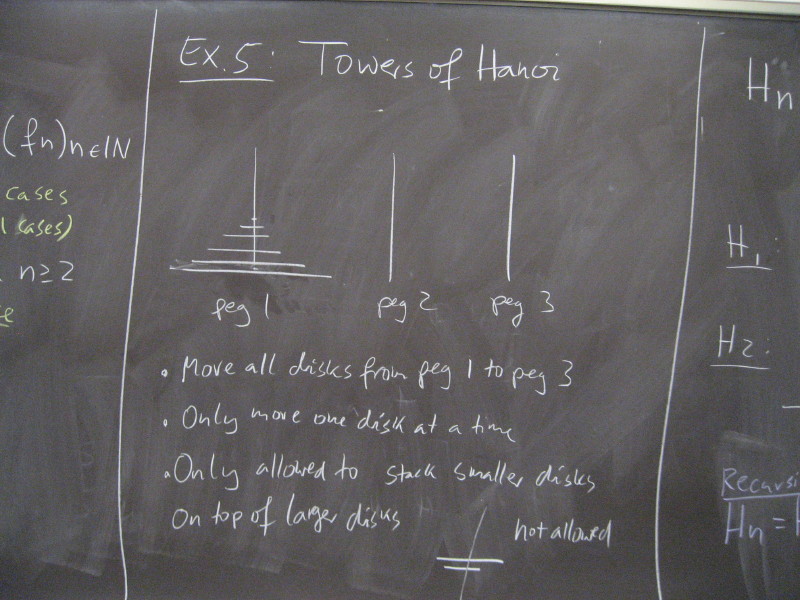 Ex.5: Towers of Hanoi
(fn)n∈IN
cases
l cases)
n≥2
peg 1
peg 2
peg 3
• Move all disks from peg 1 to peg 3
• Only more one disk at a time
• Only allowed to stack smaller disks
on top of larger disks
not allowed
Hn
H1:
H2:
Recursi
Hn =